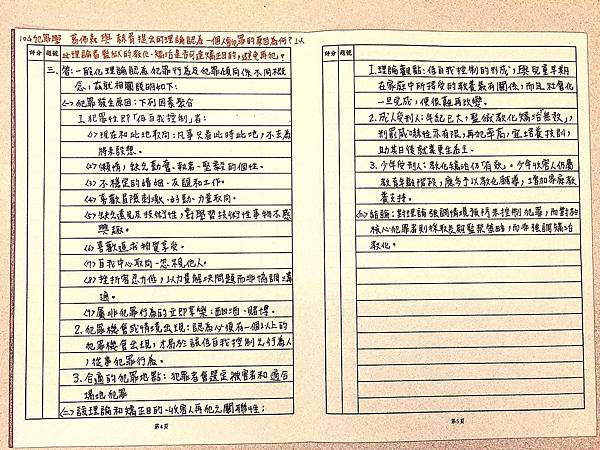 104犯罪學 葛佛森與赫胥提出的理論認為一個人犯罪的原因為何？以
此理論看監獄的教化、矯治是否可達矯正目的，避免再犯？
評分 題號
三、答：一般化理論認為犯罪行為及犯罪傾向係不同概
念，茲就相關說明如下：
(一)犯罪發生原因：下列因素聚合
1.犯罪性即「低自我控制」者：
(1)現在和此地取向：凡事只看此時此地，不去為
將來設想。
(2)懶惰，缺乏勤奮、執著、堅毅的個性。
(3)不穩定的婚姻、友誼和工作。
(4)喜歡冒險刺激、好動、力量取向。
(5)缺乏遠見及技術性，對學習技術性事物不感
興趣。
(6)喜歡追求物質享受。
(7)自我中心取向，忽視他人。
(8)挫折容忍力低，以力量解決問題而非協調溝
通。
(9)屬非犯罪行為的立即享樂：酗酒、賭博。
2.犯罪機會或情境出現：認為必須有一個以上的
犯罪機會出現，才易於讓低自我控制之行為人
，從事犯罪行為。
3.合適的犯罪地點：犯罪者會選定被害者和適合
場地犯罪
(二)該理論和矯正目的－收容人再犯之關聯性：
第4頁
評分 題號
1.理論觀點：低自我控制的形成，與兒童早期
在家庭中所接受的教養最有關係，而且社會化
一旦完成，便很難再改變。
2.成人受刑人：年紀已大，監獄教化矯治「無效」，
刑罰威嚇性亦有限，再犯率高，宜培養技訓，
助其日後就業更生為主。
3.少年受刑人：教化矯治仍「有效」。少年收容人仍屬
教育年齡階段，應多予以教化輔導，增加家庭教
養支持。
(三)結論：對理論強調情境預防來控制犯罪，而對於
核心犯罪者則採取長期監禁策略，而非強調矯治
教化。
第5頁